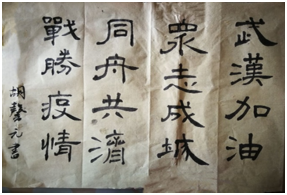 武漢加油
眾志成城
同舟共濟
戰勝疫情
胡馨元書